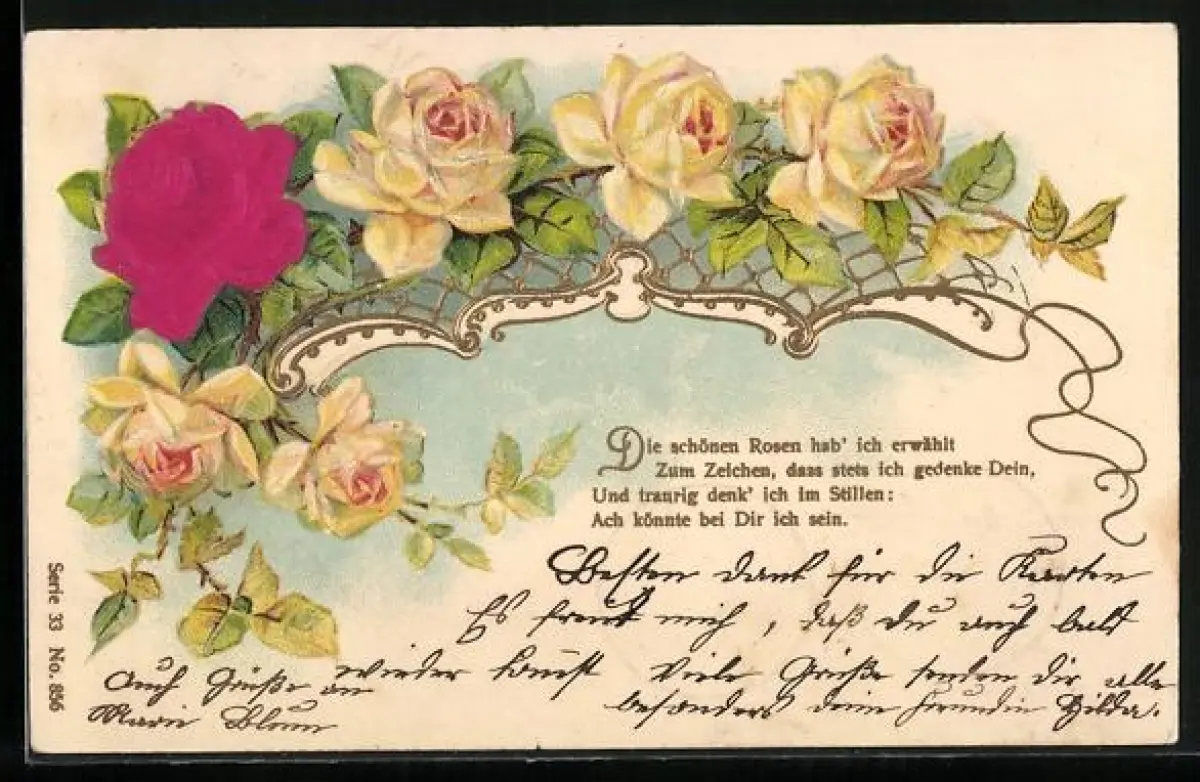 Die schönen Rosen hab' ich erwählt
Zum Zeichen, dass stets ich gedenke Dein,
Und traurig denk' ich im Stillen:
Ach könnte bei Dir ich sein.
Besten dank für die Karten
Es freut mich, daß du auch balt
wieder komst Viele Grüße senden dir alle
besonders deine Freundin Hilda.
Auch Grüße an
Marie Blum
Serie 33 No. 856